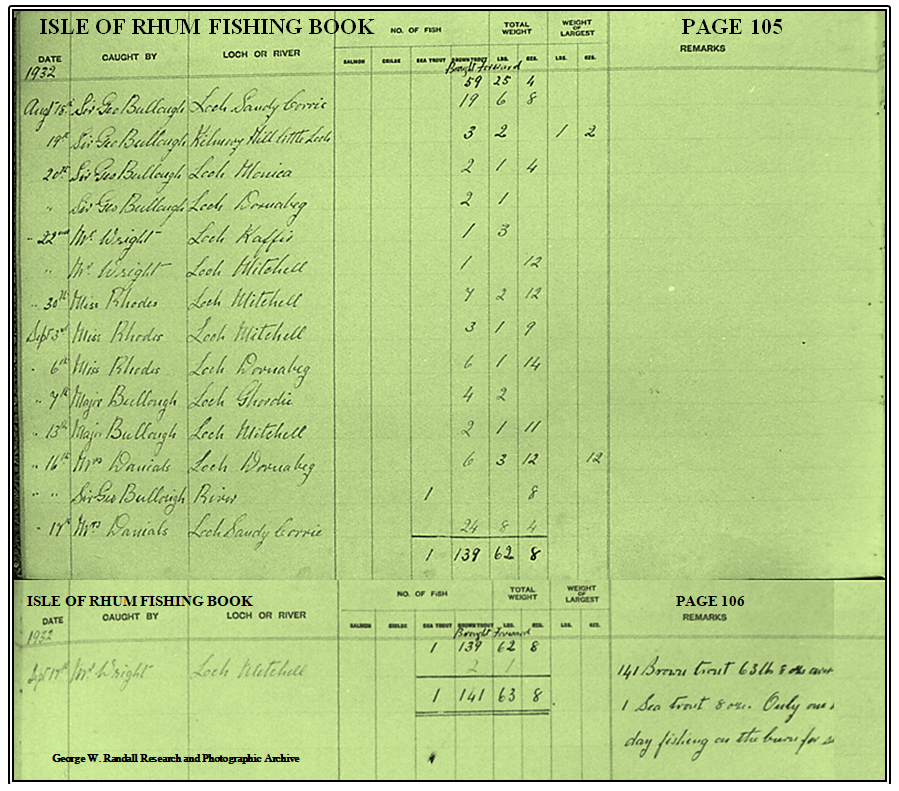 ISLE OF RHUM FISHING BOOK PAGE 105
DATE CAUGHT BY LOCH OR RIVER NO. OF FISH TOTAL WEIGHT WEIGHT OF LARGEST REMARKS
SALMON GRILSE SEA TROUT BROWN TROUT LBS. OZS. LBS. OZS.
1932 Brought Forward
59 25 4
Augt 18th Sir Geo Bullough Loch Sandy Corrie 19 6 8
19th Sir Geo Bullough Kilmory Hill little Loch 3 2 1 2
20th Sir Geo Bullough Loch Monica 2 1 4
" Sir Geo Bullough Loch Dornabeg 2 1
" 22nd Mr Wright Loch Kaffir 1 3
" Mr Wright Loch Mitchell 1 12
" 30th Miss Rhodes Loch Mitchell 7 2 12
Sept 3rd Miss Rhodes Loch Mitchell 3 1 9
" 6th Miss Rhodes Loch Dornabeg 6 1 14
" 7th Major Bullough Loch Ghordie 4 2
" 13th Major Bullough Loch Mitchell 2 1 11
" 16th Mrs Danials Loch Dornabeg 6 3 12 12
" " Sir Geo Bullough River 1 8
" 17th Mrs Danials Loch Sandy Corrie 24 8 4
1 139 62 8
ISLE OF RHUM FISHING BOOK PAGE 106
DATE CAUGHT BY LOCH OR RIVER NO. OF FISH TOTAL WEIGHT WEIGHT OF LARGEST REMARKS
SALMON GRILSE SEA TROUT BROWN TROUT LBS. OZS. LBS. OZS.
1932 Brought Forward
1 139 62 8
Sept 17th Mr Wright Loch Mitchell 2 1
1 141 63 8
141 Brown trout 63lb 8 ozs
1 Sea trout 8 ozs. Only one
day fishing on the burn for
George W. Randall Research and Photographic Archive